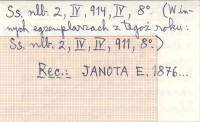 Ss. nlb. 2, IV, 914, IV, 8°. (W in-
nych egzemplarzach z tegoż roku:
Ss. nlb. 2, IV, IV, 911, 8°.)
Rec.: JANOTA E. 1876...